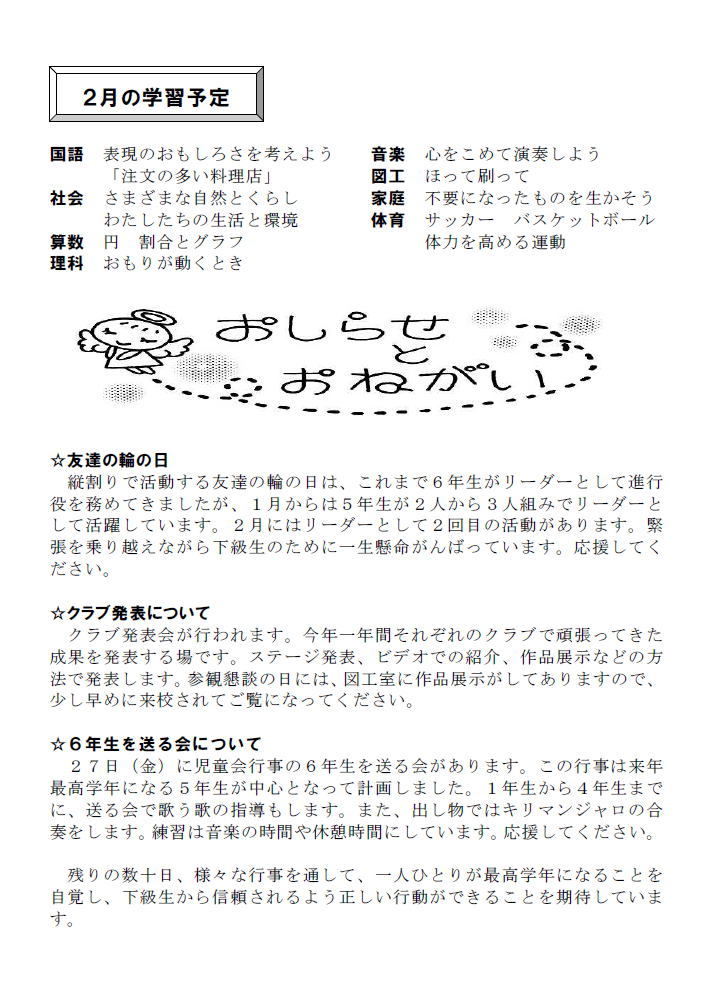 ２月の学習予定
国語　表現のおもしろさを考えよう
「注文の多い料理店」
社会　さまざまな自然とくらし
わたしたちの生活と環境
算数　円　割合とグラフ
理科　おもりが動くとき
音楽　心をこめて演奏しよう
図工　ほって刷って
家庭　不要になったものを生かそう
体育　サッカー　バスケットボール
体力を高める運動
おしらせ
と
おねがい
☆友達の輪の日
　縦割りで活動する友達の輪の日は、これまで６年生がリーダーとして進行
役を務めてきましたが、１月からは５年生が２人から３人組みでリーダーと
して活躍しています。２月にはリーダーとして２回目の活動があります。緊
張を乗り越えながら下級生のために一生懸命がんばっています。応援してく
ださい。
☆クラブ発表について
　クラブ発表会が行われます。今年一年間それぞれのクラブで頑張ってきた
成果を発表する場です。ステージ発表、ビデオでの紹介、作品展示などの方
法で発表します。参観懇談の日には、図工室に作品展示がしてありますので、
少し早めに来校されてご覧になってください。
☆６年生を送る会について
　２７日（金）に児童会行事の６年生を送る会があります。この行事は来年
最高学年になる５年生が中心となって計画しました。１年生から４年生まで
に、送る会で歌う歌の指導もします。また、出し物ではキリマンジャロの合
奏をします。練習は音楽の時間や休憩時間にしています。応援してください。
　残りの数十日、様々な行事を通して、一人ひとりが最高学年になることを
自覚し、下級生から信頼されるよう正しい行動ができることを期待していま
す。